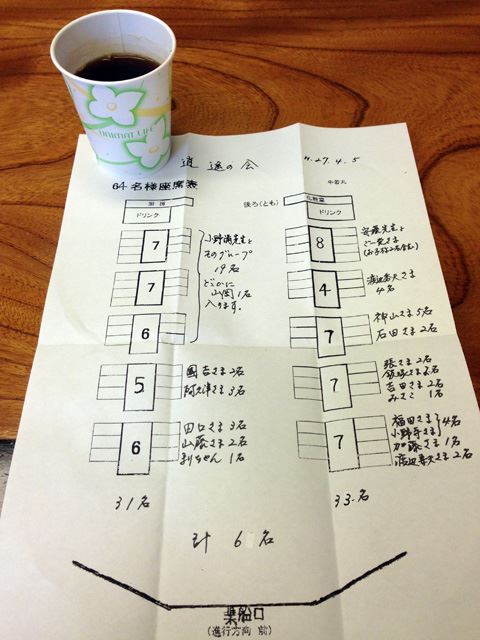 UNIMAT LIFE
逍遥の会
H.27.4.5
64名様座席表
後ろ(とも)
牛若丸
厨房
化粧室
ドリンク
ドリンク
7
小野満先生と
そのグループ
19名
どこかに
山岡1名
入ります。
8
安藤先生と
ご一党さま
7
4
渡辺嘉夫さま
4名
6
7
柳山さま5名
石田さま2名
5
國吉さま2名
阿久津さま3名
7
張さま2名
吉田さま2名
みさこ 1名
6
田口さま3名
山藤さま2名
1名
7
福田さま
小野寺さま
4名
加藤さま1名
渡辺寿夫さま2名
31名
33名
計 6 名
乗船口
(進行方向 前)